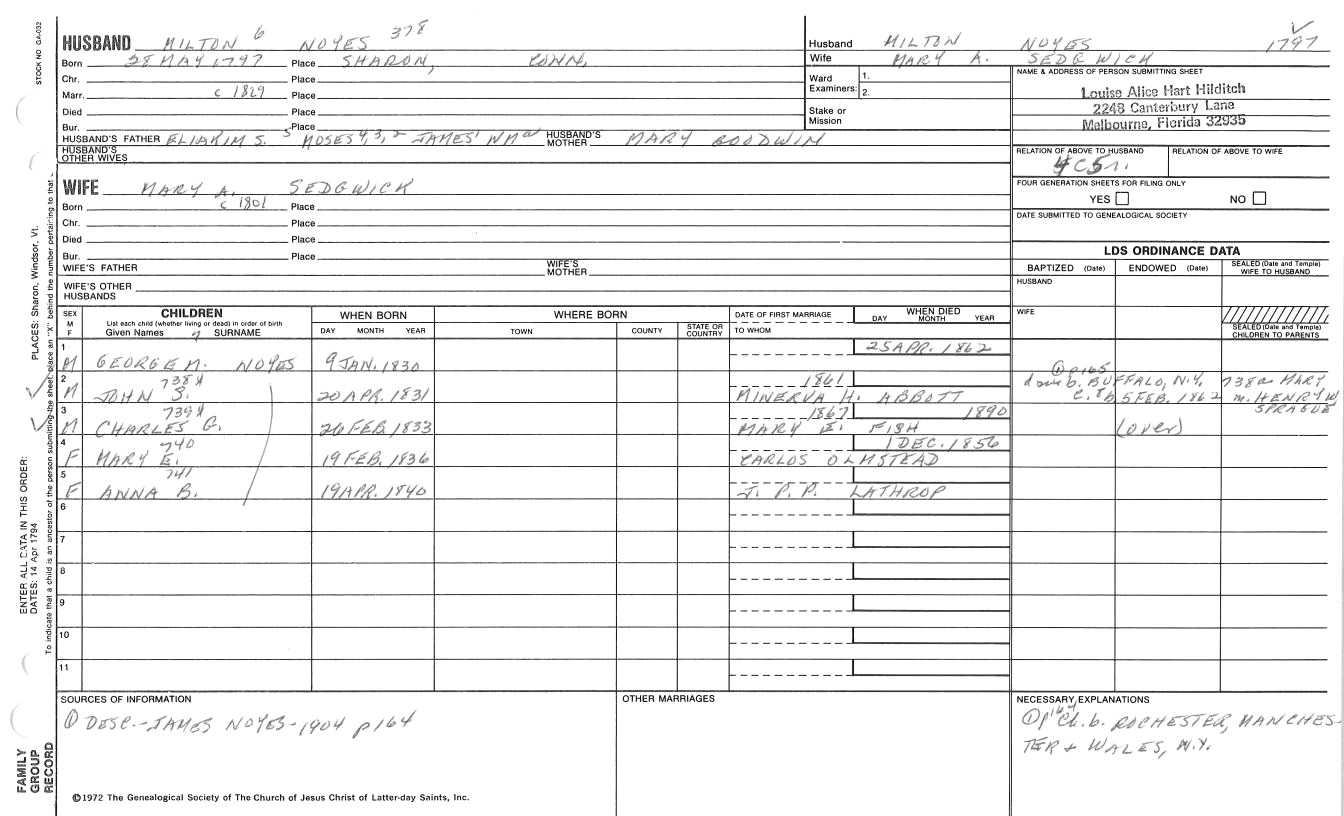 HUSBAND MILTON 6 NOYES 378
Born 28 MAY 1797 Place SHARON, CONN,
Chr. Place
Marr. c 1829 Place
Died Place
Bur. Place
HUSBAND'S FATHER ELIAKIM S. 5 MOSES 4,3,2 JAMES 1 WM a HUSBAND'S MOTHER MARY GOODWIN
HUSBAND'S OTHER WIVES
Husband MILTON NOYES 1797
Wife MARY A. SEDGWICK
Ward Examiners: 1.
2.
Stake or Mission
NAME & ADDRESS OF PERSON SUBMITTING SHEET
Louise Alice Hart Hilditch
2248 Canterbury Lane
Melbourne, Florida 32935
RELATION OF ABOVE TO HUSBAND RELATION OF ABOVE TO WIFE
FOUR GENERATION SHEETS FOR FILING ONLY
YES NO
DATE SUBMITTED TO GENEALOGICAL SOCIETY
WIFE MARY A. SEDGWICK
Born c 1801 Place
Chr. Place
Died Place
Bur. Place
WIFE'S FATHER WIFE'S MOTHER
WIFE'S OTHER HUSBANDS
LDS ORDINANCE DATA
BAPTIZED (Date) ENDOWED (Date) SEALED (Date and Temple) WIFE TO HUSBAND
HUSBAND
WIFE
SEALED (Date and Temple) CHILDREN TO PARENTS
SEX M F
CHILDREN
List each child (whether living or dead) in order of birth
Given Names SURNAME
WHEN BORN
DAY MONTH YEAR
WHERE BORN
TOWN COUNTY STATE OR COUNTRY
DATE OF FIRST MARRIAGE
TO WHOM
WHEN DIED
DAY MONTH YEAR
1 25 APR. 1862
M GEORGE M. NOYES 9 JAN. 1830
2 738 1861
M JOHN S. 20 APR. 1831 MINERVA H. ABBOTT
3 739 1867 1890
M CHARLES G. 26 FEB. 1833 MARY E. FISH
4 740 1 DEC. 1856
F MARY E. 19 FEB. 1836 CARLOS OLMSTEAD
5 741
F ANNA B. 19 APR. 1840 J. P. P. LATHROP
6
7
8
9
10
11
p165
b. BUFFALO, N.Y. 738a MARY
5 FEB. 1862 m. HENRY W.
SPRAGUE
(over)
SOURCES OF INFORMATION
① DESC.-JAMES NOYES-1904 p164
OTHER MARRIAGES
NECESSARY EXPLANATIONS
① p164 Ch. b. ROCHESTER, MANCHES-
TER + WALES, N.Y.
©1972 The Genealogical Society of The Church of Jesus Christ of Latter-day Saints, Inc.
STOCK NO GA-032
PLACES: Sharon, Windsor, Vt.
ENTER ALL DATA IN THIS ORDER:
DATES: 14 Apr 1794
To indicate that a child is an ancestor of the person submitting the sheet, place an "X" behind the number pertaining to that
FAMILY GROUP RECORD